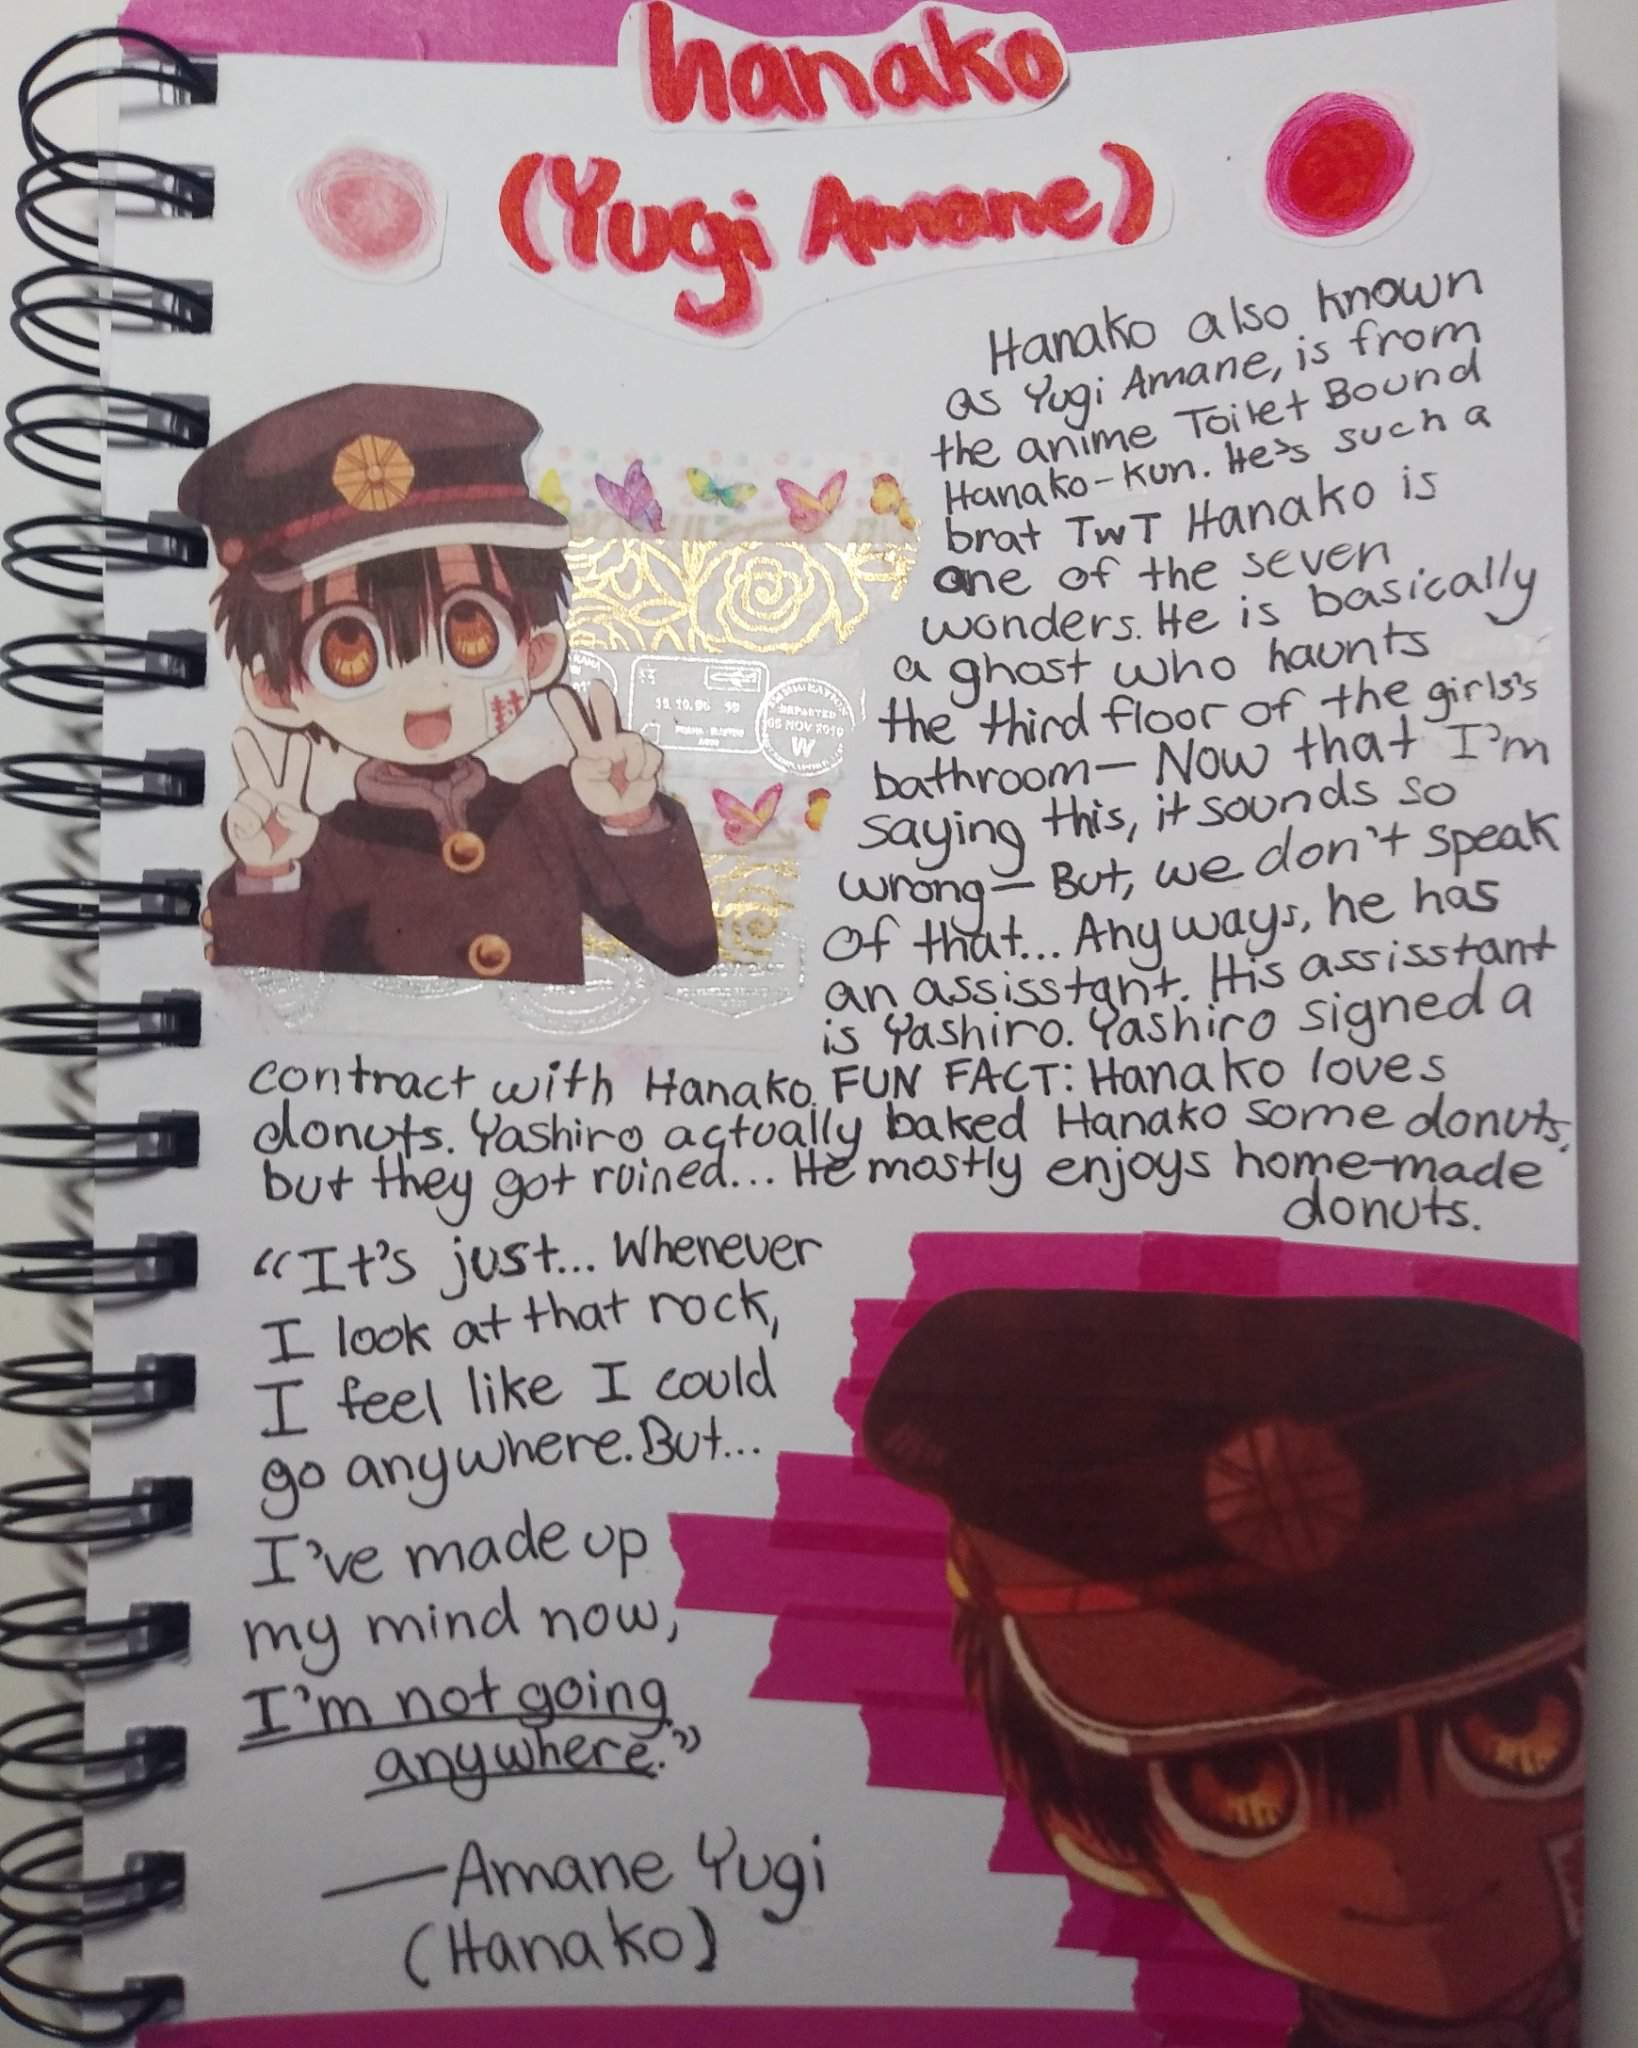 hanako
(Yugi Amane)
Hanako also known
as Yugi Amane, is from
the anime Toilet Bound
Hanako-kun. He's such a
brat TwT Hanako is
one of the seven
wonders. He is basically
a ghost who haunts
the third floor of the girls's
bathroom— Now that I'm
saying this, it sounds so
wrong— But, we don't speak
of that... Anyways, he has
an assisstant. His assisstant
is Yashiro. Yashiro signed a
contract with Hanako. FUN FACT: Hanako loves
donuts. Yashiro actually baked Hanako some donuts,
but they got ruined... He mostly enjoys home-made
donuts.
封
IMMIGRATION
DEPARTED
05 NOV 2010
W
"It's just... Whenever
I look at that rock,
I feel like I could
go anywhere. But...
I've made up
my mind now,
I'm not going
anywhere."
—Amane Yugi
(Hanako)